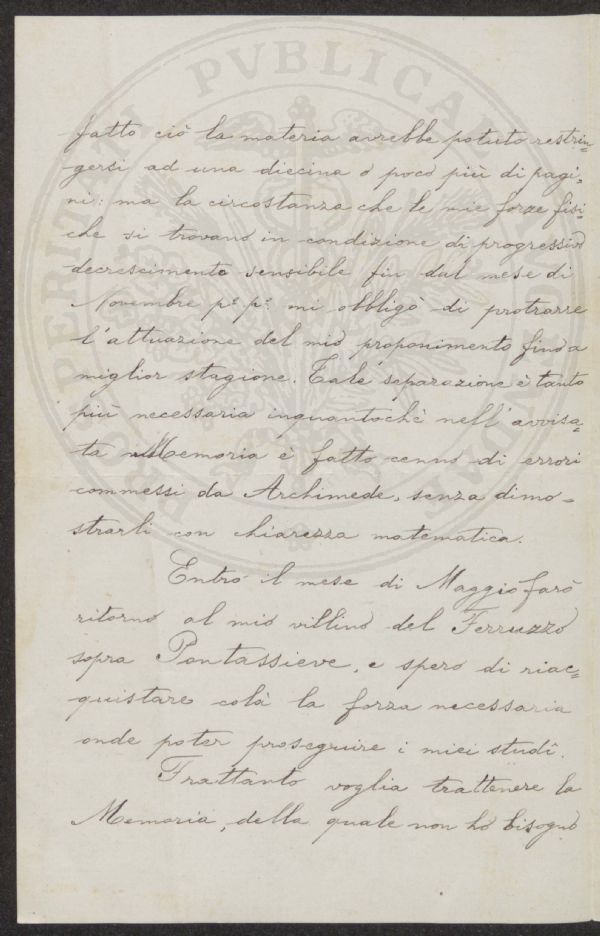 fatto ciò la materia avrebbe potuto restrin=
gersi ad una diecina o poco più di pagi=
ni: ma la circostanza che le mie forze fisi=
che si trovano in condizione di progressivo
decrescimento sensibile fin dal mese di
Novembre p.º p.º mi obbligò di protrarre
l'attuazione del mio proponimento fino a
miglior stagione. Tale separazione è tanto
più necessaria inquantochè nell'avvisa=
ta Memoria è fatto cenno di errori
commessi da Archimede, senza dimo=
strarli con chiarezza matematica.
Entro il mese di Maggio farò
ritorno al mio villino del Ferruzzo
sopra Pontassieve, e spero di riac=
quistare colà la forza necessaria
onde poter proseguire i miei studî.
Frattanto voglia trattenere la
Memoria, della quale non ho bisogno
PRO VERITATE PVBLICANDAE